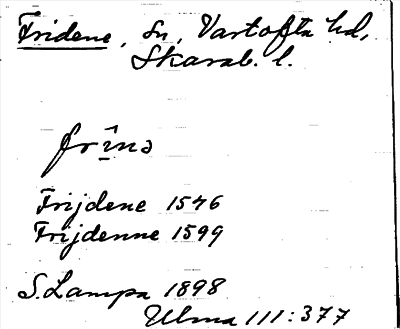 Fridene, sn, Vartofta hd,
Skarab. l.
frînə
Frijdene 1546
Frijdenne 1599
S. Lampa 1898
Ulma III:377